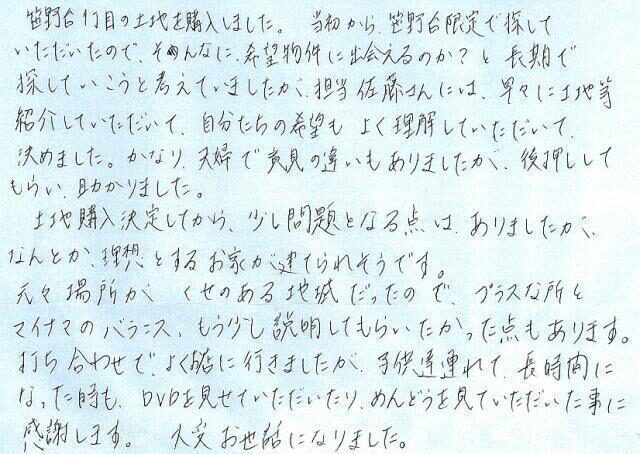 笹野台1丁目の土地を購入しました。 当初から、笹野台限定で探して
いただいたので、そめんなに、希望物件に出会えるのか?と 長期で
探していこうと考えていましたが、担当 佐藤さんには、早々に土地等
紹介していただいて、自分たちの希望も よく理解していただいて、
決めました。かなり、夫婦で意見の違いもありましたが、後押しして
もらい、助かりました。
土地購入決定してから、少し問題となる点は、ありましたが、
なんとか、理想とするお家が建てられそうです。
元々 場所が くせのある地域だったので、プラスな所と
マイナマのバランス、もう少し説明してもらいたかった点もあります。
打ち合わせで、よくお店に行きましたが、子供達連れて、長時間に
なった時も、DVDを見せていただいたり、めんどうを見ていただいた事に
感謝します。 大変お世話になりました。